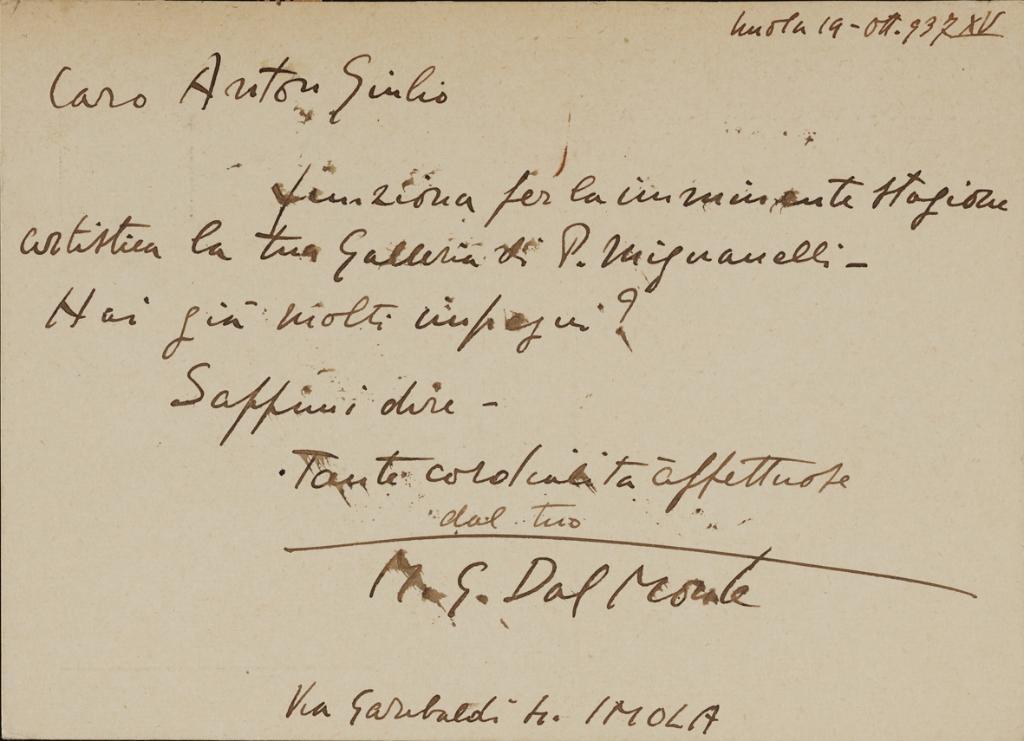 Imola 19-Ott. 937 XV
Caro Anton Giulio
funziona per la imminente stagione
artistica la tua Galleria di P. Mignanelli -
Hai già molti impegni?
Sappimi dire -
Tante cordialità affettuose
dal tuo
M. G. Dal Monte
Via Garibaldi IMOLA